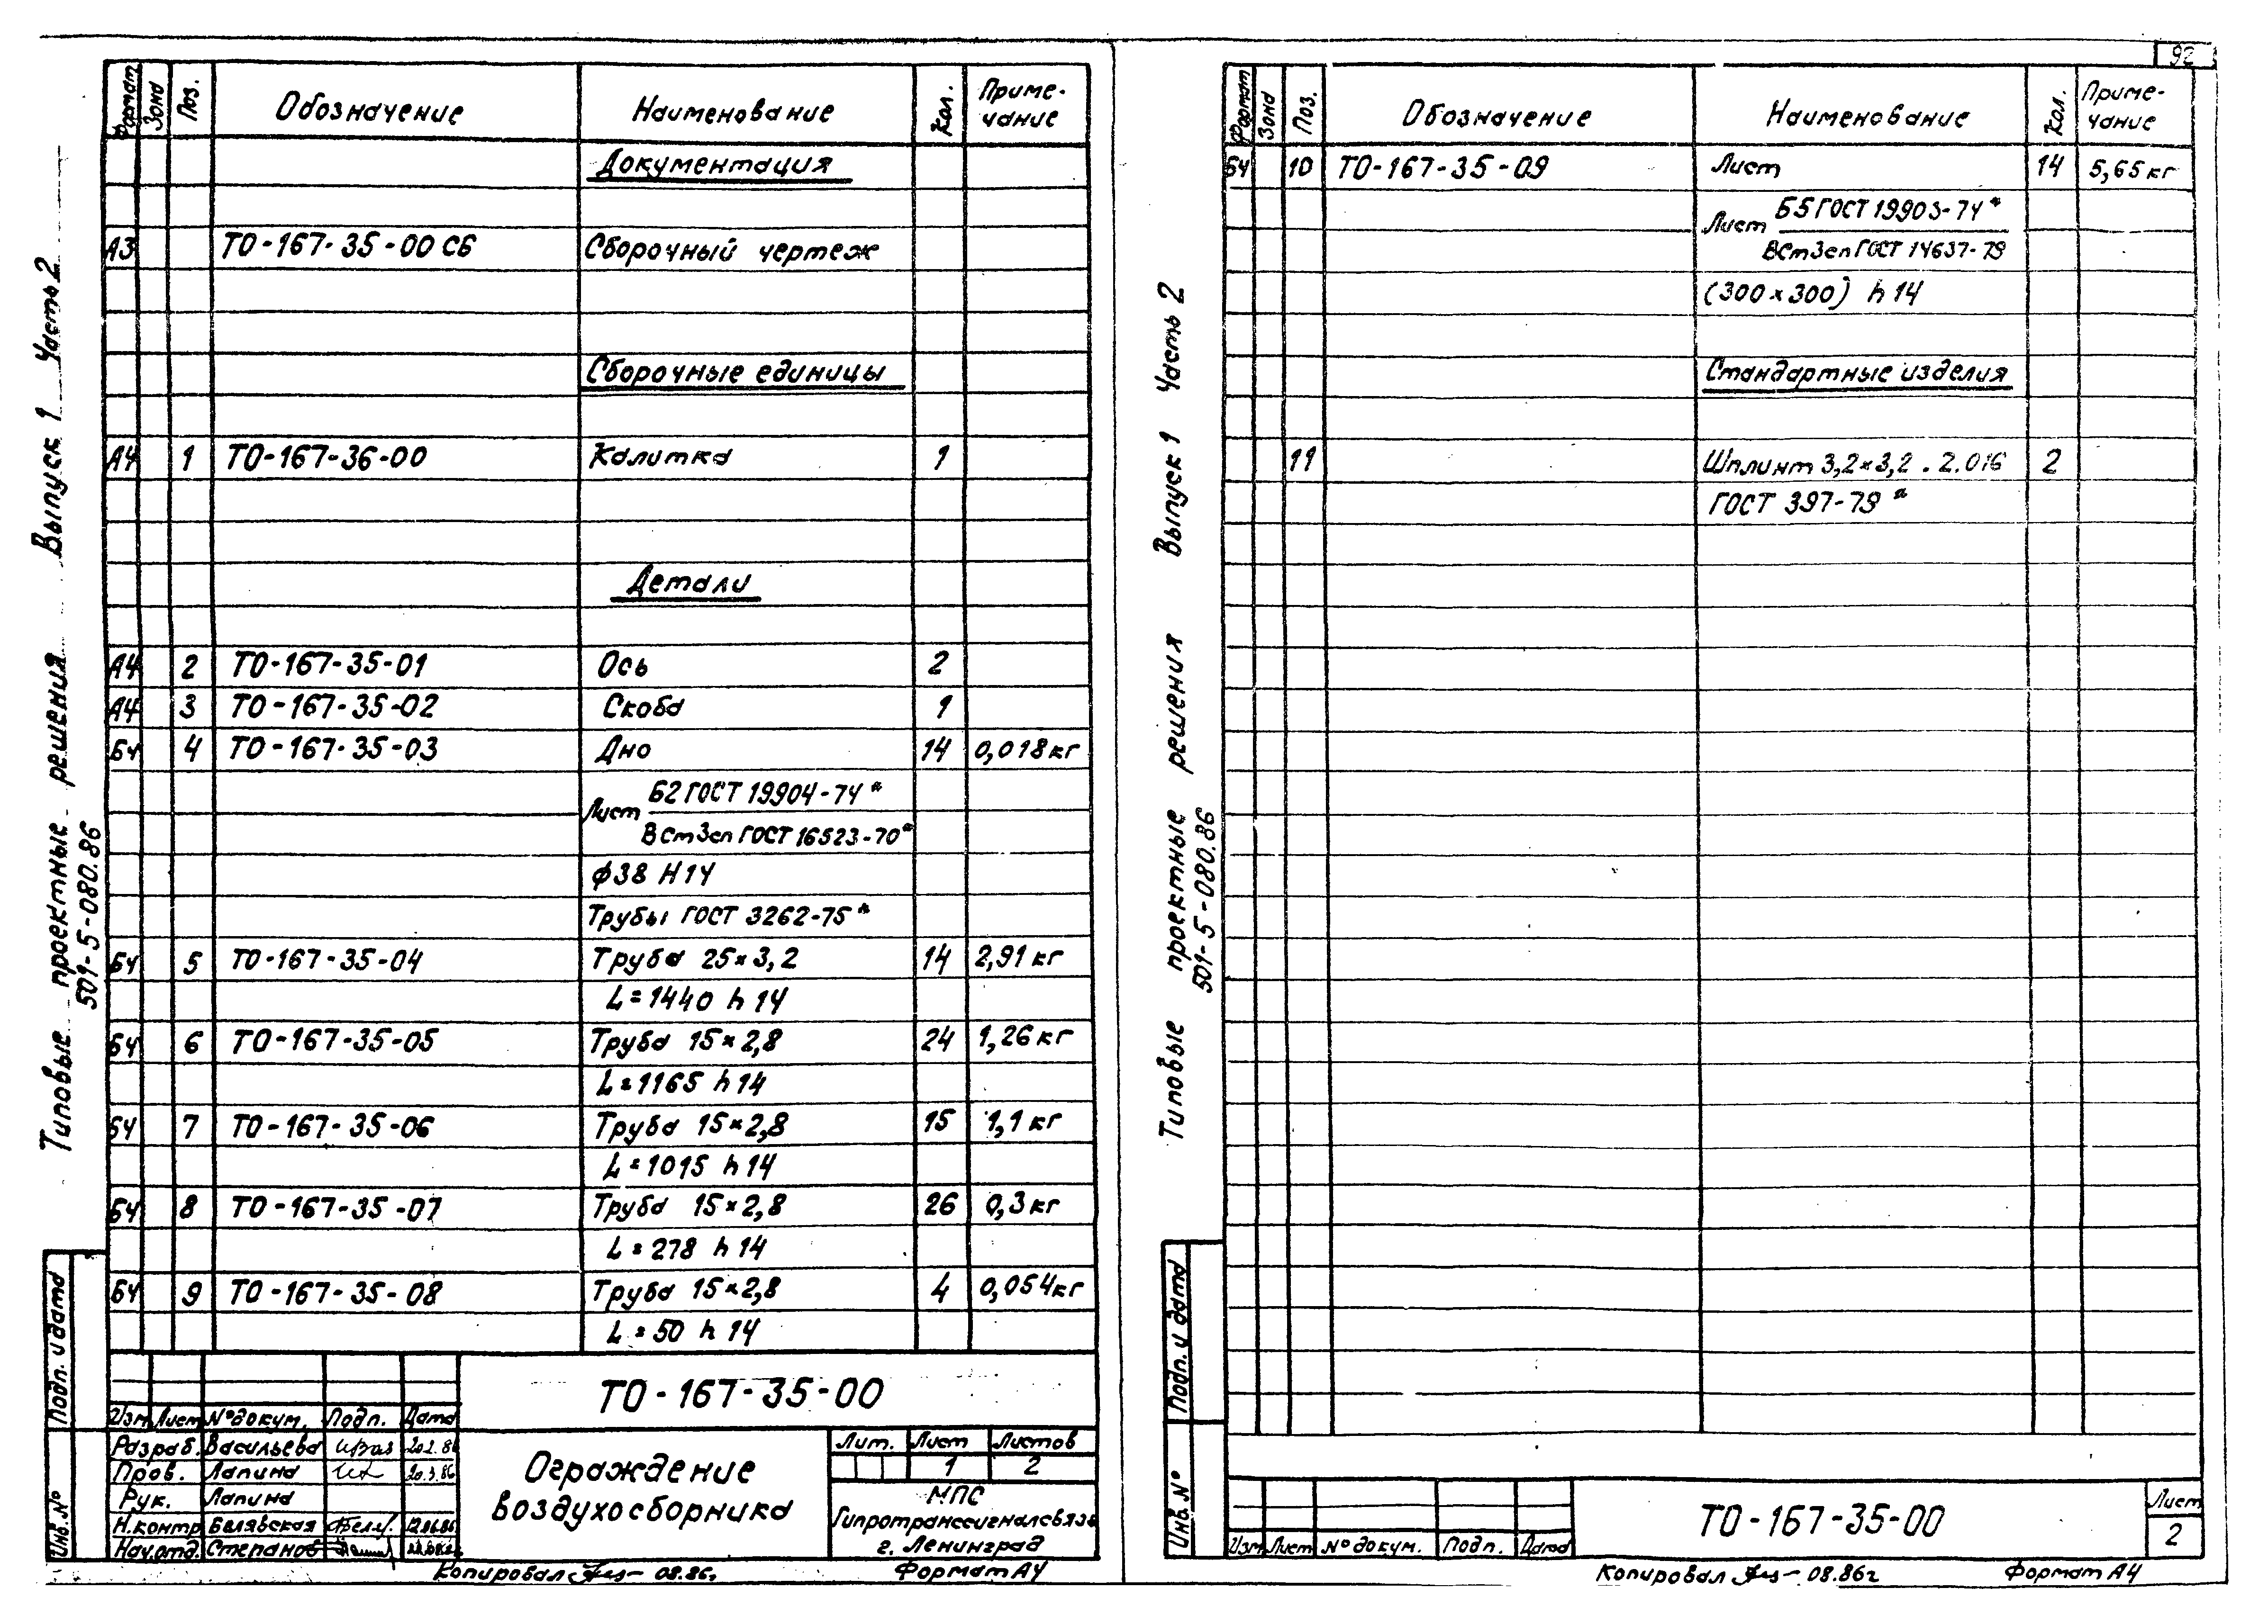 92
Формат Зона Поз. Обозначение Наименование Кол. Приме-
чание
Документация
А3 ТО-167-35-00 СБ Сборочный чертеж
Сборочные единицы
А4 1 ТО-167-36-00 Калитка 1
Детали
А4 2 ТО-167-35-01 Ось 2
А4 3 ТО-167-35-02 Скоба 1
БЧ 4 ТО-167-35-03 Дно 14 0,018 кг
Б2 ГОСТ 19904-74*
Лист
ВСт3сп ГОСТ 16523-70*
ф38 H14
Трубы ГОСТ 3262-75*
БЧ 5 ТО-167-35-04 Труба 25×3,2 14 2,91 кг
L=1440 h14
БЧ 6 ТО-167-35-05 Труба 15×2,8 24 1,26 кг
L=1165 h14
БЧ 7 ТО-167-35-06 Труба 15×2,8 15 1,1 кг
L=1015 h14
БЧ 8 ТО-167-35-07 Труба 15×2,8 26 0,3 кг
L=278 h14
БЧ 9 ТО-167-35-08 Труба 15×2,8 4 0,054 кг
L=50 h14
ТО-167-35-00
Изм Лист № докум. Подп. Дата
Разраб. Васильева 20.2.86
Пров. Лапина 20.3.86
Рук. Лапина
Н.контр Белявская 12.06.86
Нач.отд. Степанов
Ограждение
воздухосборника
Лит. Лист Листов
1 2
МПС
Гипротранссигналсвязь
г. Ленинград
Копировал 08.86г Формат А4
Типовые проектные решения Выпуск 1 Часть 2
501-5-080.86
Подп. и дата
Инв. №
Формат Зона Поз. Обозначение Наименование Кол. Приме-
чание
БЧ 10 ТО-167-35-09 Лист 14 5,65 кг
Б5 ГОСТ 19903-74*
Лист
ВСт3сп ГОСТ 14637-79
(300×300) h14
Стандартные изделия
11 Шплинт 3,2×3,2.2.016 2
ГОСТ 397-79*
ТО-167-35-00
Лист
2
Изм Лист № докум. Подп. Дата
Копировал 08.86г Формат А4
Типовые проектные решения Выпуск 1 Часть 2
501-5-080.86
Подп. и дата
Инв. №